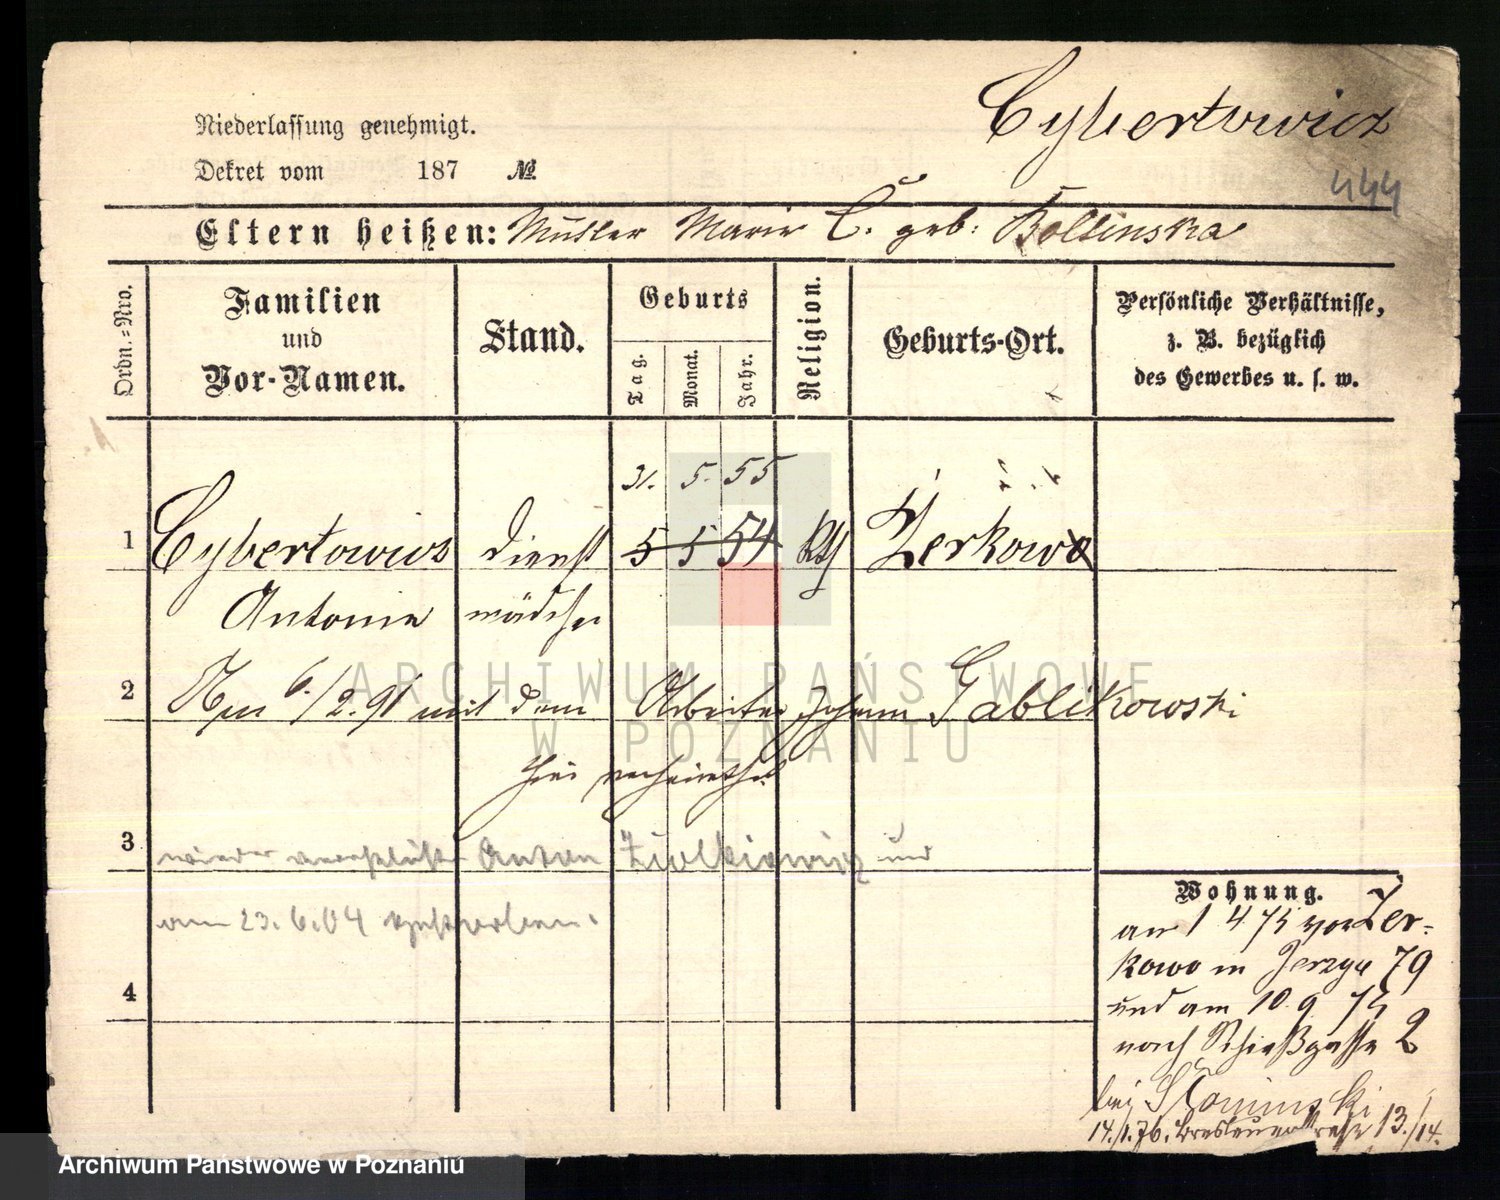 Cybertowicz
Niederlassung genehmigt.
Dekret vom 187 №
444
Eltern heißen: Mutter Marie C. geb: Bolsinska
Ordn.-Nro.
Familien
und
Vor-Namen.
Stand.
Geburts
Tag.
Monat.
Jahr.
Religion.
Geburts-Ort.
Persönliche Verhältnisse,
z. B. bezüglich
des Gewerbes u. s. w.
31. 5. 55
1 Cybertowicz Dienst 5 5 54 kth Zerkowo
Antonie mädchen
2 Am 6/2.91 mit dem Arbeiter Johann Gablikowski
hier verheirathet
3 wieder Anton Ziolkiewicz und
am 23.6.04 gestorben.
4
Wohnung.
am 1 4 75 von Zer-
kowo in Jerzyce 79
und am 10 9 75
nach Schießgasse 2
bei Słominski
14./1.76. Breslauerstraße 13./14.
ARCHIWUM PAŃSTWOWE
W POZNANIU
Archiwum Państwowe w Poznaniu